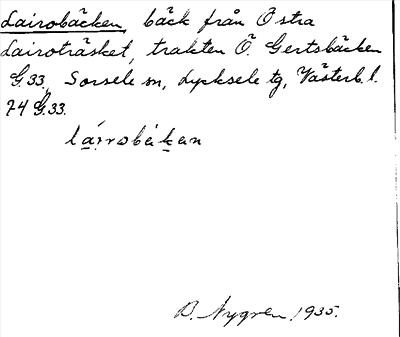 Lairobäcken, bäck från Östra
Lairoträsket, trakten Ö. Gertsbäcken
G.33, Sorsele sn, Lycksele tg, Västerb. l.
74 G.33.
lairobäkan
D. Nygren, 1935.